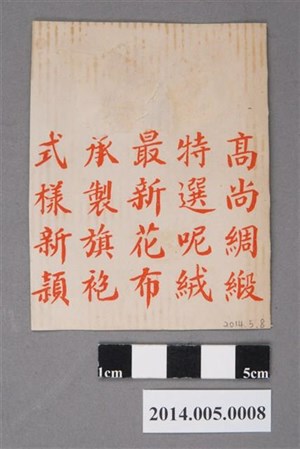 高尚綢緞
特選呢絨
最新花布
承製旗袍
式樣新穎
2014.5.8
1cm 5cm
2014.005.0008